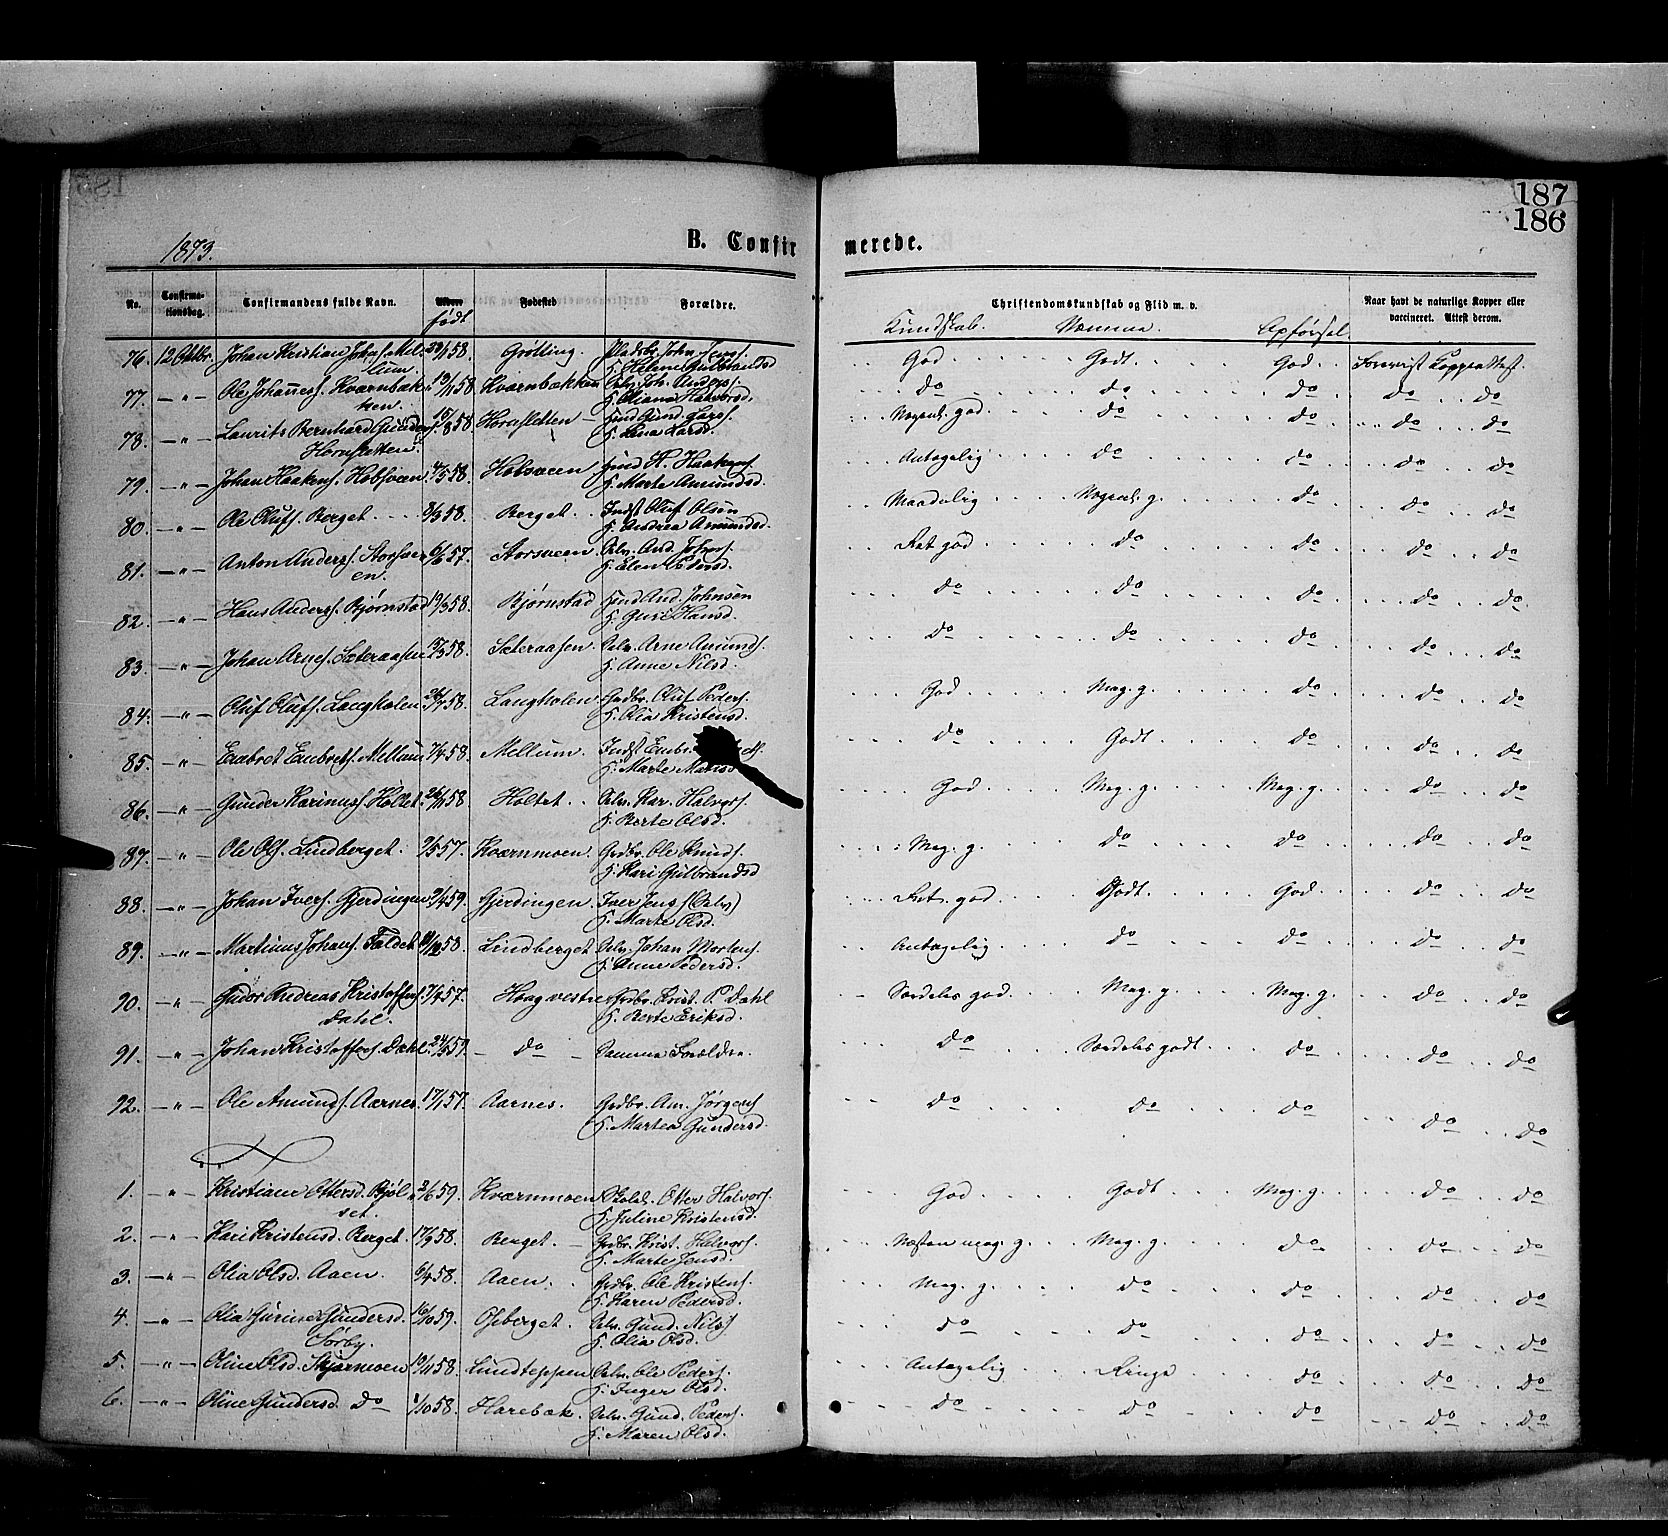 187
186
1873.
B. Confirmerede.
No. Confirmationsdag. Confirmandens fulde Navn. Alder født Fødested Forældre. Christendomskundskab og Flid m. v. Naar havt de naturlige Kopper eller vaccineret. Attest derom.
Kundskab. Nemme. Opførsel.
76. 12 Oktbr. Johan Kristian Johns. Mellum. /1 58. Grötting. Pladsbr. John Jens. H. Helene Gulbrandsd God Godt God Forevist Koppeattest.
77. — " — Ole Johannes. Kværnbækken. 13/11 58 Kværnbækken Arb. Joh. Anders. H. Oliana Halvorsd. do do do do do
78. — " — Laurits Bernhard Gunders. Hornsletten. 15/8 58 Hornsletten Gund. Lars. H. Lena Larsd. Nogenl. god do do do do
79. — " — Johan Haakens. Hobsveen 4/5 58. Hobsveen H. Haakens. H. Marte Amundsd. Antagelig do do do do
80. — " — Ole Olufs. Berget 3/3 58. Berget. Indst Oluf Olsen H. Andrea Amundsd. Maadelig Nogenl. g. do do do
81. — " — Anton Anders. Storsveen. 6/6 57. Storsveen Arb. And. Johns. H. Elen Pedersd. Ret god do do do do
82. — " — Hans Anders. Bjørnstad 19/3 58. Bjørnstad And. Johnsen H. Guri Hansd. do do do do do
83. — " — Johan Arnes. Sæteraasen /3 58. Sæteraasen. Arb. Arne Amunds. H. Anne Nilsd. do do do do do
84. — " — Oluf Olufs. Langholen 26/7 58. Langholen Grdbr. Oluf Peders. H. Olia Kristensd. God Meg. g. do do do
85. — " — Embret Embrets. Mellum 7/4 58. Mellum. Indst Embr. H. Marte do Godt do do do
86. — " — Gunder Karinus. Holtet. 26/11 58 Holtet. Arb. Kar. Halvors. H. Berte Olsd. God Meg. g. Meg. g. do do
87. — " — Ole Ols. Lindberget. 9/5 57. Kværnmoen. Grdbr. Ole Knuds. H. Kari Gulbrandsd Meg. g. do do do do
88. — " — Johan Ivers. Gjerdingen 9/4 59. Gjerdingen. Iver Jens. (Arb.) H. Marte Olsd. Ret god Godt. God. do do
89. — " — Martinus Johans. Faldet 11/12 58. Lindberget Arb. Johan Mortens. H. Anne Pedersd. Antagelig do do do do
90. — " — Gudor Andreas Kristoffers. Dahl. 7/9 57. Haag vestre Grdbr. Krist. P. Dahl H. Berte Eriksd. Særdeles god. Meg. g. Meg. g. do do
91. — " — Johan Kristoffers. Dahl. 24/5 59. — do — Samme Forældre. do Særdeles godt do do do
92. — " — Ole Amunds. Aarnes. 17/1 57. Aarnes. Grdbr. Am. Jørgens. H. Martea Gundersd. do do do do do
1. — " — Kristiane Ottersd. Bjølset. 2/6 59. Kværnmoen Skolel. Otter Halvors. H. Juline Kristensd. God Godt Meg. g. do do
2. — " — Kari Kristensd. Berget. 17/9 58. Berget. Grdbr. Krist. Halvors. H. Marte Jensd. Næsten meg. g. Meg. g. do do do
3. — " — Olia Olsd. Aaen. 6/4 58. Aaen. Grdbr. Ole Kristens. H. Karen Pedersd. Meg. g. do do do do
4. — " — Olia Gurine Gundersd. Sørby. 16/10 59. Osberget. Arb. Gund. Nils. H. Olia Olsd. do do do do do
5. — " — Oline Olsd. Skjærmoen 19/11 58. Lundteppen Arb. Ole Peders. H. Inger Olsd. Antagelig Ringe do do do
6. — " — Oline Gundersd. do 1/10 58. Harebak. Arb. Gund. Peders. H. Maren Olsd. do do do do do